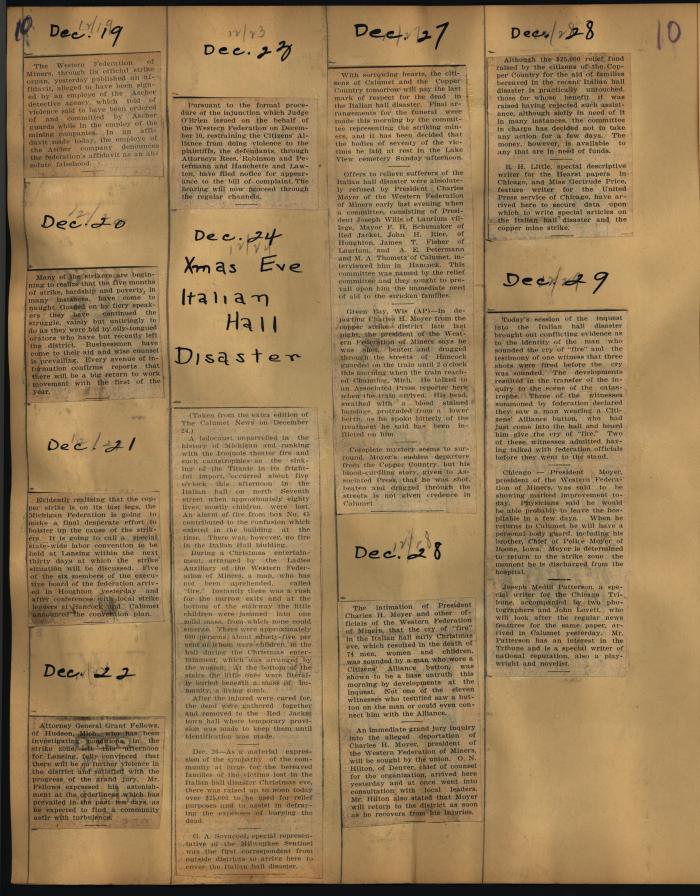 10
Dec. 19
The Western Federation of
Miners, through its official strike
organ, yesterday published an af-
fidavit, alleged to have been sign-
ed by an employe of the Ascher
detective agency, which told of
violence said to have been ordered
of and committed by Ascher
guards while in the employ of the
mining companies. In an affi-
davit made today, the employe of
the Ascher company denounces
the federation's affidavit as an ab-
solute falsehood.
Dec. 20
Many of the strikers are begin-
ning to realize that the five months
of strike, hardship and poverty, in
many instances, have come to
naught. Goaded on by fiery speak-
ers they have continued the
struggle, vainly but untiringly to
do as they were bid by oily-tongued
orators who have but recently left
the district. Businessmen have
come to their aid and wise counsel
is prevailing. Every avenue of in-
formation confirms reports that
there will be a big return to work
movement with the first of the
year.
Dec. 21
Evidently realizing that the cop-
per strike is on its last legs, the
Michigan Federation is going to
make a final desperate effort to
bolster up the cause of the strik-
ers. It is going to call a special
state-wide labor convention to be
held at Lansing within the next
thirty days at which the strike
situation will be discussed. Five
of the six members of the execu-
tive board of the federation arriv-
ed in Houghton yesterday and
after conferences with local strike
leaders at Hancock and Calumet
announced the convention plan.
Dec. 22
Attorney General Grant Fellows,
of Hudson, Mich., who has been
investigating conditions in the
strike zone, left this afternoon
for Lansing, fully convinced that
there will be no further violence in
the district and satisfied with the
progress of the grand jury. Mr.
Fellows expressed his astonish-
ment at the orderliness which has
prevailed in the past few days, as
he expected to find a community
astir with turbulence.
12/23
Dec. 23
Pursuant to the formal proce-
dure of the injunction which Judge
O'Brien issued on the behalf of
the Western Federation on Decem-
ber 10, restraining the Citizens' Al-
liance from doing violence to the
plaintiffs, the defendants, through
Attorneys Rees, Robinson and Pe-
termann and Hanchette and Law-
ton, have filed notice for appear-
ance to the bill of complaint. The
hearing will now proceed through
the regular channels.
Dec. 24
Xmas Eve
Italian
Hall
Disaster
(Taken from the extra edition of
The Calumet News on December
24.)
A holocaust unparalleled in the
history of Michigan and ranking
with the Iroquois theater fire and
such catastrophies as the sink-
ing of the Titanic in its fright-
ful import, occurred about five
o'clock this afternoon in the
Italian hall on north Seventh
street when approximately eighty
lives, mostly children, were lost.
An alarm of fire from box No. 45
contributed to the confusion which
existed in the building at the
time. There was, however, no fire
in the Italian Hall building.
During a Christmas entertain-
ment, arranged by the Ladies
Auxiliary of the Western Feder-
ation of Miners, a man, who has
not been aprehended, yelled
"fire." Instantly there was a rush
for the narrow exits and at the
bottom of the stairway the little
children were jammed into one
solid mass, from which none could
emerge. There were approximately
600 persons, about ninety-five per
cent of whom were children, in the
hall during the Christmas enter-
tainment, which was arranged by
the women. At the bottom of the
stairs the little ones were literal-
ly buried beneath a mass of hu-
manity, a living tomb.
After the injured were cared for,
the dead were gathered together
and removed to the Red Jacket
town hall where temporary provi-
sion was made to keep them until
identification was made.
Dec. 26—As a material expres-
sion of the sympathy of the com-
munity at large for the bereaved
families of the victims lost in the
Italian hall disaster Christmas eve,
there was raised up to noon today
over $25,000 to be used for relief
purposes and to assist in defray-
ing the expenses of burying the
dead.
G. A. Sovacool, special represen-
tative of the Milwaukee Sentinel
was the first correspondent from
outside districts to arrive here to
cover the Italian hall disaster.
Dec. 27
With sorrowing hearts, the citi-
zens of Calumet and the Copper
Country tomorrow will pay the last
mark of respect for the dead in
the Italian hall disaster. Final ar-
rangements for the funeral were
made this morning by the commit-
tee representing the striking min-
ers, and it has been decided that
the bodies of seventy of the vic-
tims be laid at rest in the Lake
View cemetery Sunday afternoon.
Offers to relieve sufferers of the
Italian hall disaster were absolute-
ly refused by President Charles
Moyer of the Western Federation
of Miners early last evening when
a committee, consisting of Presi-
dent Joseph Wills of Laurium vil-
lage, Mayor F. H. Schumaker of
Red Jacket, John H. Rice, of
Houghton, James T. Fisher of
Laurium, and A. E. Petermann
and M. A. Thometz of Calumet, in-
terviewed him in Hancock. This
committee was named by the relief
committee and they sought to pre-
vail upon him the immediate need
of aid to the stricken families.
Green Bay, Wis (AP)—In de-
parting Charles H. Moyer from the
copper strike district late last
night, the president of the West-
ern Federation of Miners says he
was shot, beaten and dragged
through the streets of Hancock
guarded on the train until 2 o'clock
this morning when the train reach-
ed Channing, Mich. He talked to
an Associated Press reporter here
when the train arrived. His head,
swathed with a blood stained
bandage, protruded from a lower
berth, as he spoke bitterly of the
treatment he said has been in-
flicted on him.
Complete mystery seems to sur-
round Moyer's sudden departure
from the Copper Country, but his
blood-curdling story, given to As-
sociated Press, that he was shot,
beaten and dragged through the
streets is not given credence in
Calumet.
Dec. 28
The intimation of President
Charles H. Moyer and other of-
ficials of the Western Federation
of Miners, that the cry of "fire"
in the Italian hall early Christmas
eve, which resulted in the death of
74 men, women and children,
was sounded by a man who wore a
Citizens' Alliance button, was
shown to be a base untruth this
morning by developments at the
inquest. Not one of the eleven
witnesses who testified saw a but-
ton on the man or could even con-
nect him with the Alliance.
An immediate grand jury inquiry
into the alleged deportation of
Charles H. Moyer, president of
the Western Federation of Miners,
will be sought by the union. O. N.
Hilton, of Denver, chief of counsel
for the organization, arrived here
yesterday and at once went into
consultation with local leaders.
Mr. Hilton also stated that Moyer
will return to the district as soon
as he recovers from his injuries.
Dec. 28
10
Although the $25,000 relief fund
raised by the citizens of the Cop-
per Country for the aid of families
bereaved in the recent Italian hall
disaster is practically untouched,
those for whose benefit it was
raised having rejected such assist-
ance, although sadly in need of it
in many instances, the committee
in charge has decided not to take
any action for a few days. The
money, however, is available to
any that are in need of funds.
R. H. Little, special descriptive
writer for the Hearst papers in
Chicago, and Miss Gertrude Price,
feature writer for the United
Press service of Chicago, have ar-
rived here to secure data upon
which to write special articles on
the Italian hall disaster and the
copper mine strike.
Dec. 29
Today's session of the inquest
into the Italian hall disaster
brought out conflicting evidence as
to the identity of the man who
sounded the cry of "fire" and the
testimony of one witness that three
shots were fired before the cry
was sounded. The developments
resulted in the transfer of the in-
quiry to the scene of the catas-
trophe. Three of the witnesses
summoned by federation declared
they saw a man wearing a Citi-
zens' Alliance button, who had
just come into the hall and heard
him give the cry of "fire." Two
of these witnesses admitted hav-
ing talked with federation officials
before they went to the stand.
Chicago — President Moyer,
president of the Western Federa-
tion of Miners, was said to be
showing marked improvement to-
day. Physicians said he would
be able probably to leave the hos-
pital in a few days. When he
returns to Calumet he will have a
personal body guard, including his
brother, Chief of Police Moyer of
Boone, Iowa. Moyer is determined
to return to the strike zone the
moment he is discharged from the
hospital.
Joseph Medill Patterson, a spe-
cial writer for the Chicago Tri-
bune, accompanied by two pho-
tographers and John Lovett, who
will look after the regular news
features for the same paper, ar-
rived in Calumet yesterday. Mr.
Patterson has an interest in the
Tribune and is a special writer of
national reputation, also a play-
wright and novelist.